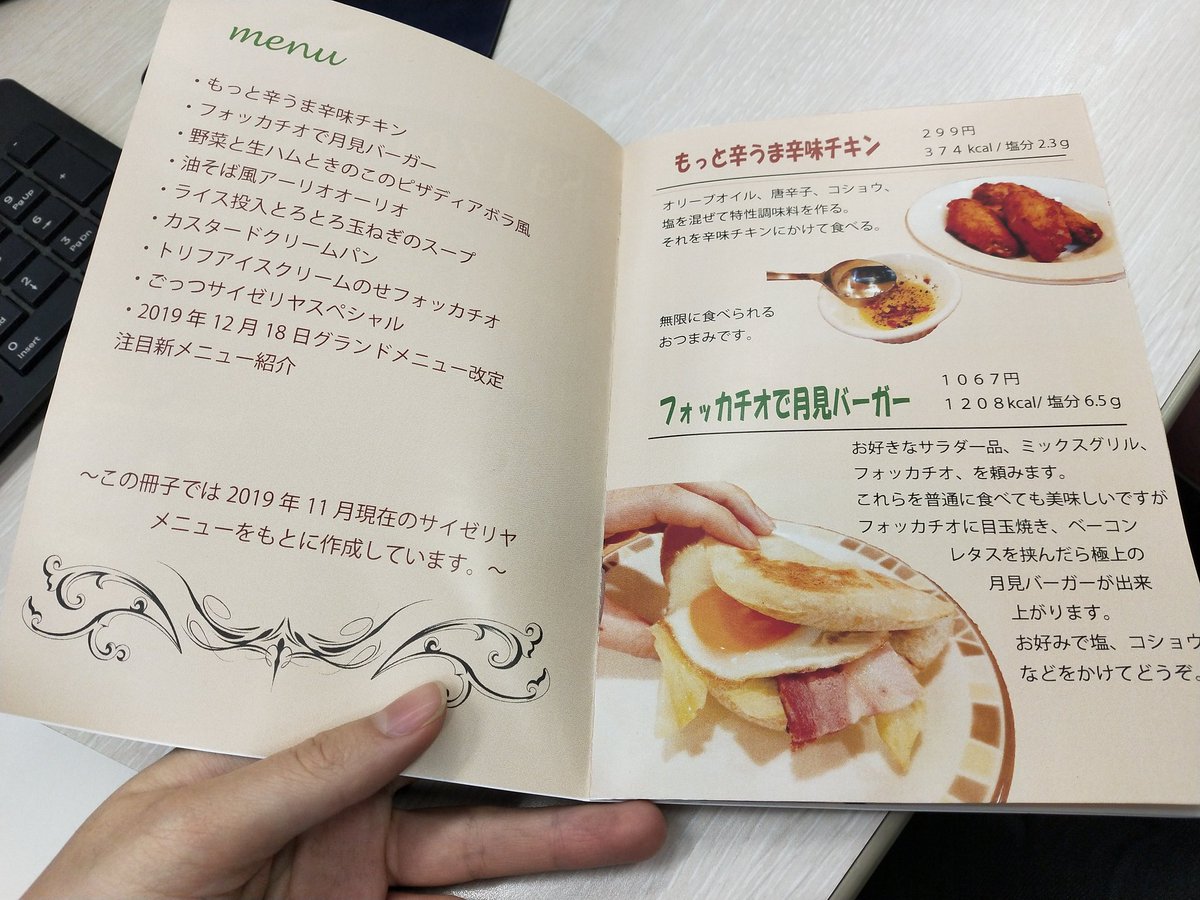 menu
・もっと辛うま辛味チキン
・フォッカチオで月見バーガー
・野菜と生ハムときのこのピザディアボラ風
・油そば風アーリオオーリオ
・ライス投入とろとろ玉ねぎのスープ
・カスタードクリームパン
・トリフアイスクリームのせフォッカチオ
・ごっつサイゼリヤスペシャル
・2019年12月18日グランドメニュー改定
注目新メニュー紹介
～この冊子では2019年11月現在のサイゼリヤ
メニューをもとに作成しています。～
もっと辛うま辛味チキン
299円
374kcal/塩分2.3g
オリーブオイル、唐辛子、コショウ、
塩を混ぜて特性調味料を作る。
それを辛味チキンにかけて食べる。
無限に食べられる
おつまみです。
フォッカチオで月見バーガー
1067円
1208kcal/塩分6.5g
お好きなサラダ一品、ミックスグリル、
フォッカチオ、を頼みます。
これらを普通に食べても美味しいですが
フォッカチオに目玉焼き、ベーコン
レタスを挟んだら極上の
月見バーガーが出来
上がります。
お好みで塩、コショウ
などをかけてどうぞ。
9 PgUp
+
6 →
3 PgDn
0 Insert